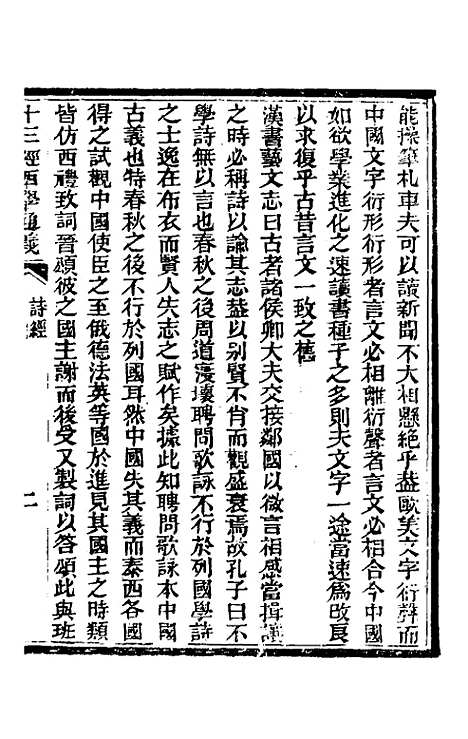 能操筆札車夫可以讀新聞不大相懸絕乎蓋歐美文字衍聲而
中國文字衍形衍形者言文必相離衍聲者言文必相合今中國
如欲學業進化之速讀書種子之多則夫文字一途當速爲改良
以求復乎古昔言文一致之舊
漢書藝文志曰古者諸侯卿大夫交接鄰國以微言相感當揖讓
之時必稱詩以諭其志蓋以別賢不肖而觀盛衰焉故孔子曰不
學詩無以言也春秋之後周道寖壞聘問歌詠不行於列國學詩
之士逸在布衣而賢人失志之賦作矣據此知聘問歌詠本中國
古義也特春秋之後不行於列國耳然中國失其義而泰西各國
得之試觀中國使臣之至俄德法英等國於進見其國主之時類
皆仿西禮致詞晉頌彼之國主謝而後受又製詞以答頌此與班
十三經西學通義
詩經
二